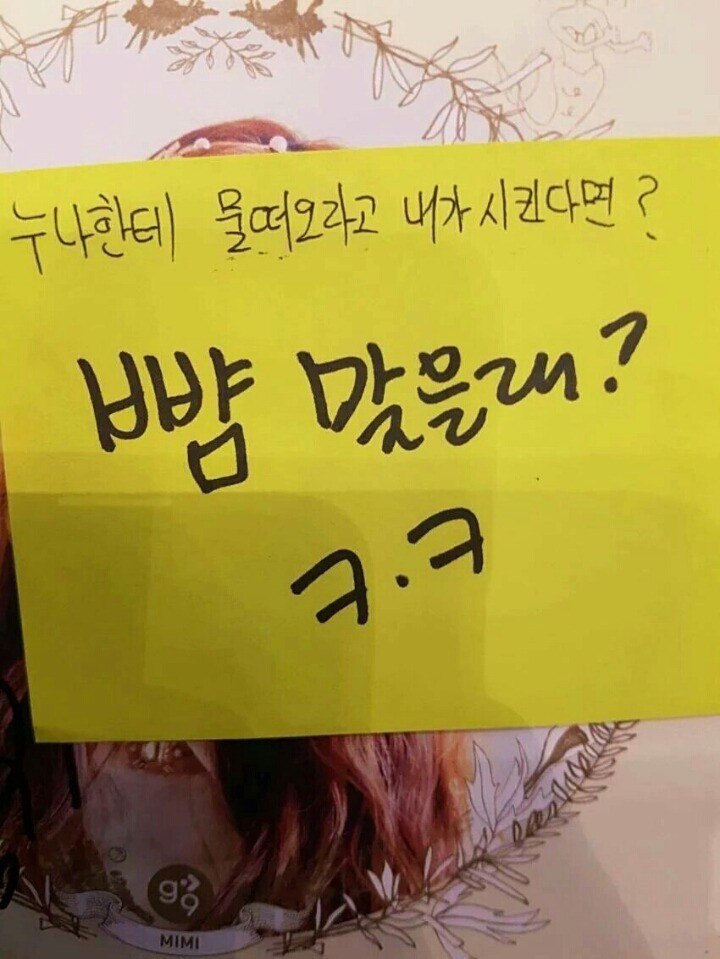 누나한테 물떠오라고 내가 시킨다면?
뺨 맞을래?
ㅋ.ㅋ
g9
MIMI